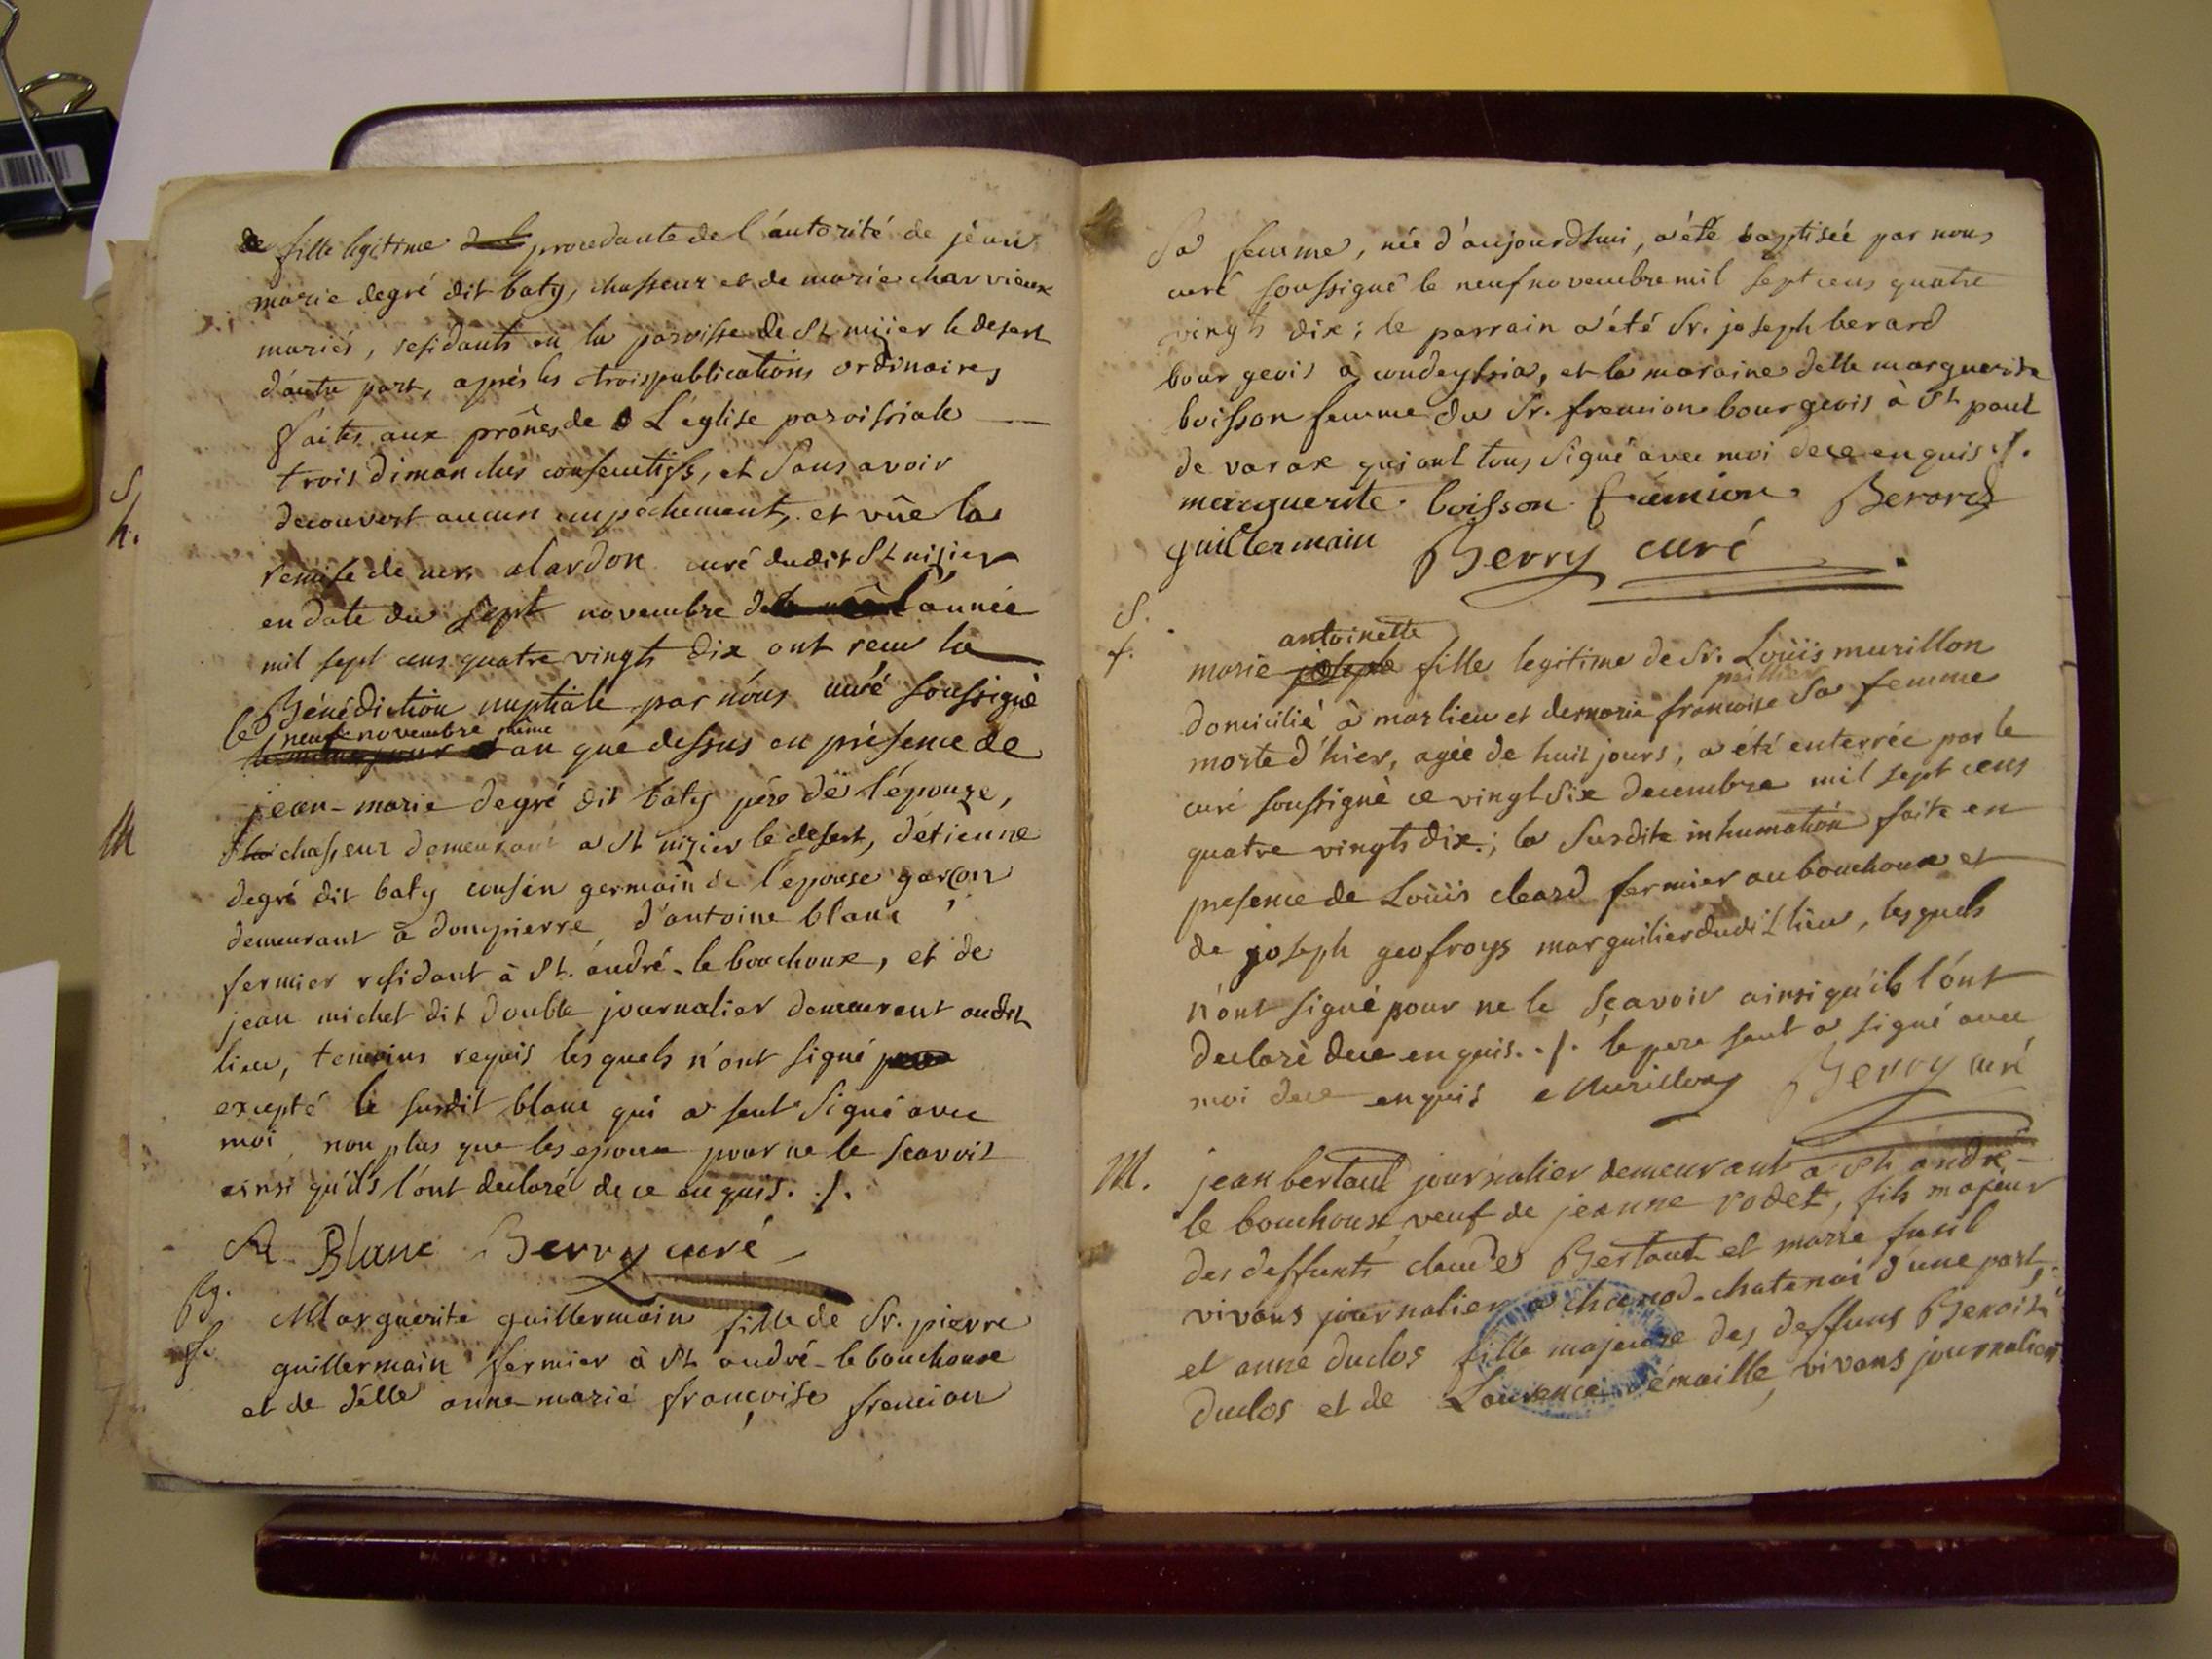 de fille legitime procedante de l'autorité de jean
marie degré dit baty, chasseur et de marie charvieux
mariés, residants en la paroisse de St nizier le desert
d'autre part, après les trois publications ordinaires
faites aux prônes de L'eglise paroissiale
trois dimanches consecutifs, et sans avoir
decouvert aucun empêchement, et vûe la
remise de mr. alardon curé dudit St nizier
en date du sept novembre de l'année
mil sept cens quatre vingts dix ont reçu la
Bénédiction nuptiale par nous curé soussigné
le neuf novembre même
an que dessus en présence de
jean-marie degré dit baty père de l'épouze,
chasseur demeurant a St nizier le desert, d'étienne
degré dit baty cousin germain de l'épouse garçon
demeurant à dompierre, d'antoine blanc
fermier residant à St. andré-le bouchoux, et de
jean michel dit double journalier demeurant audit
lieu, temoins requis lesquels n'ont signé
excepté le susdit blanc qui a seul signé avec
moi, non plus que les epoux pour ne le scavoir
ainsi qu'ils l'ont declaré de ce enquis. ./.
Blanc Berry curé
S
h.
M
B.
f.
Marguerite guillermain fille de Sr. pierre
guillermain fermier à St andré-le bouchoux
et de délle anne-marie françoise frencion
sa femme, née d'aujourdhui, a été baptisée par nous
curé soussigné le neuf novembre mil sept cens quatre
vingts dix; le parrain a été Sr. joseph berard
bourgeois à condeyssia, et la maraine delle marguerite
boisson femme du Sr. frencion bourgeois à St paul
de varax qui ont tous signé avec moi de ce enquis ./.
marguerite boisson Berard
guillermain Berry curé
S.
f.
antoinette
marie josephe fille legitime de Sr. Loüis murillon
domicilié à marlieu et de marie francoise sa femme
morte d'hier, agée de huit jours, a été enterrée par le
curé soussigné ce vingt six decembre mil sept cens
quatre vingts dix; la susdite inhumation faite en
presence de Loüis cleard fermier au bouchoux et
de joseph geofroys marguilier dudit lieu, lesquels
n'ont signé pour ne le sçavoir ainsi qu'ils l'ont
declaré de ce enquis. ./. le pere seul a signé avec
moi de ce enquis Murillon Berry curé
M.
jean bertaud journalier demeurant a St andré-
le bouchoux, veuf de jeanne rodet, fils majeur
des deffunts claude Bertaud et marie fusil
vivans journaliers a chanod-chatenai d'une part,
et anne duclos fille majeure des deffuns Benoit
duclos et de Laurenceémaille, vivans journaliers